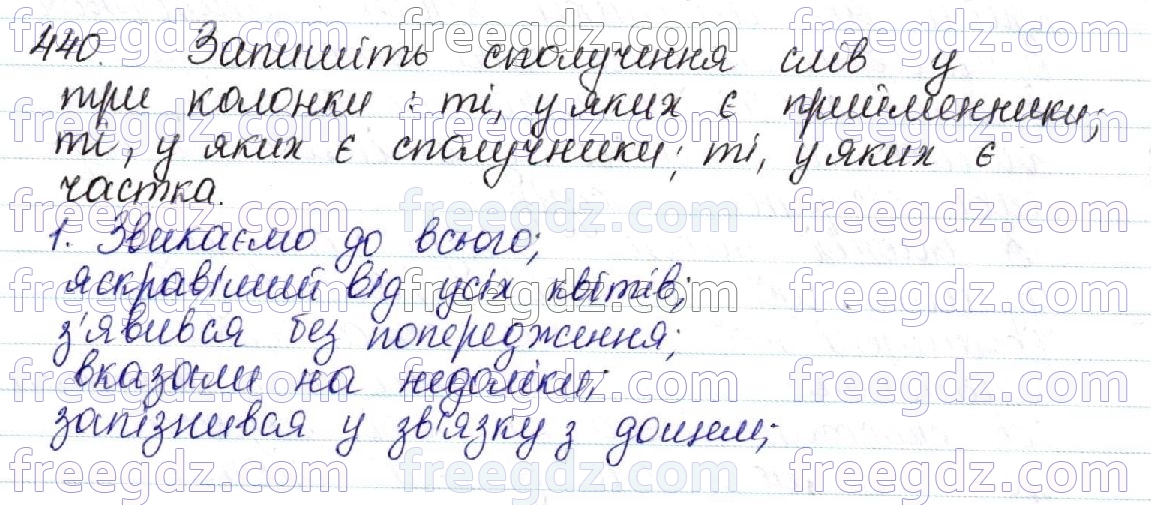 440. Запишіть сполучення слів у
три колонки : ті, у яких є прийменники;
ті, у яких є сполучники; ті, у яких є
частка.
1. Звикаємо до всього;
яскравіший від усіх квітів;
з'явився без попередження;
вказали на недоліки;
запізнився у зв'язку з дощем;